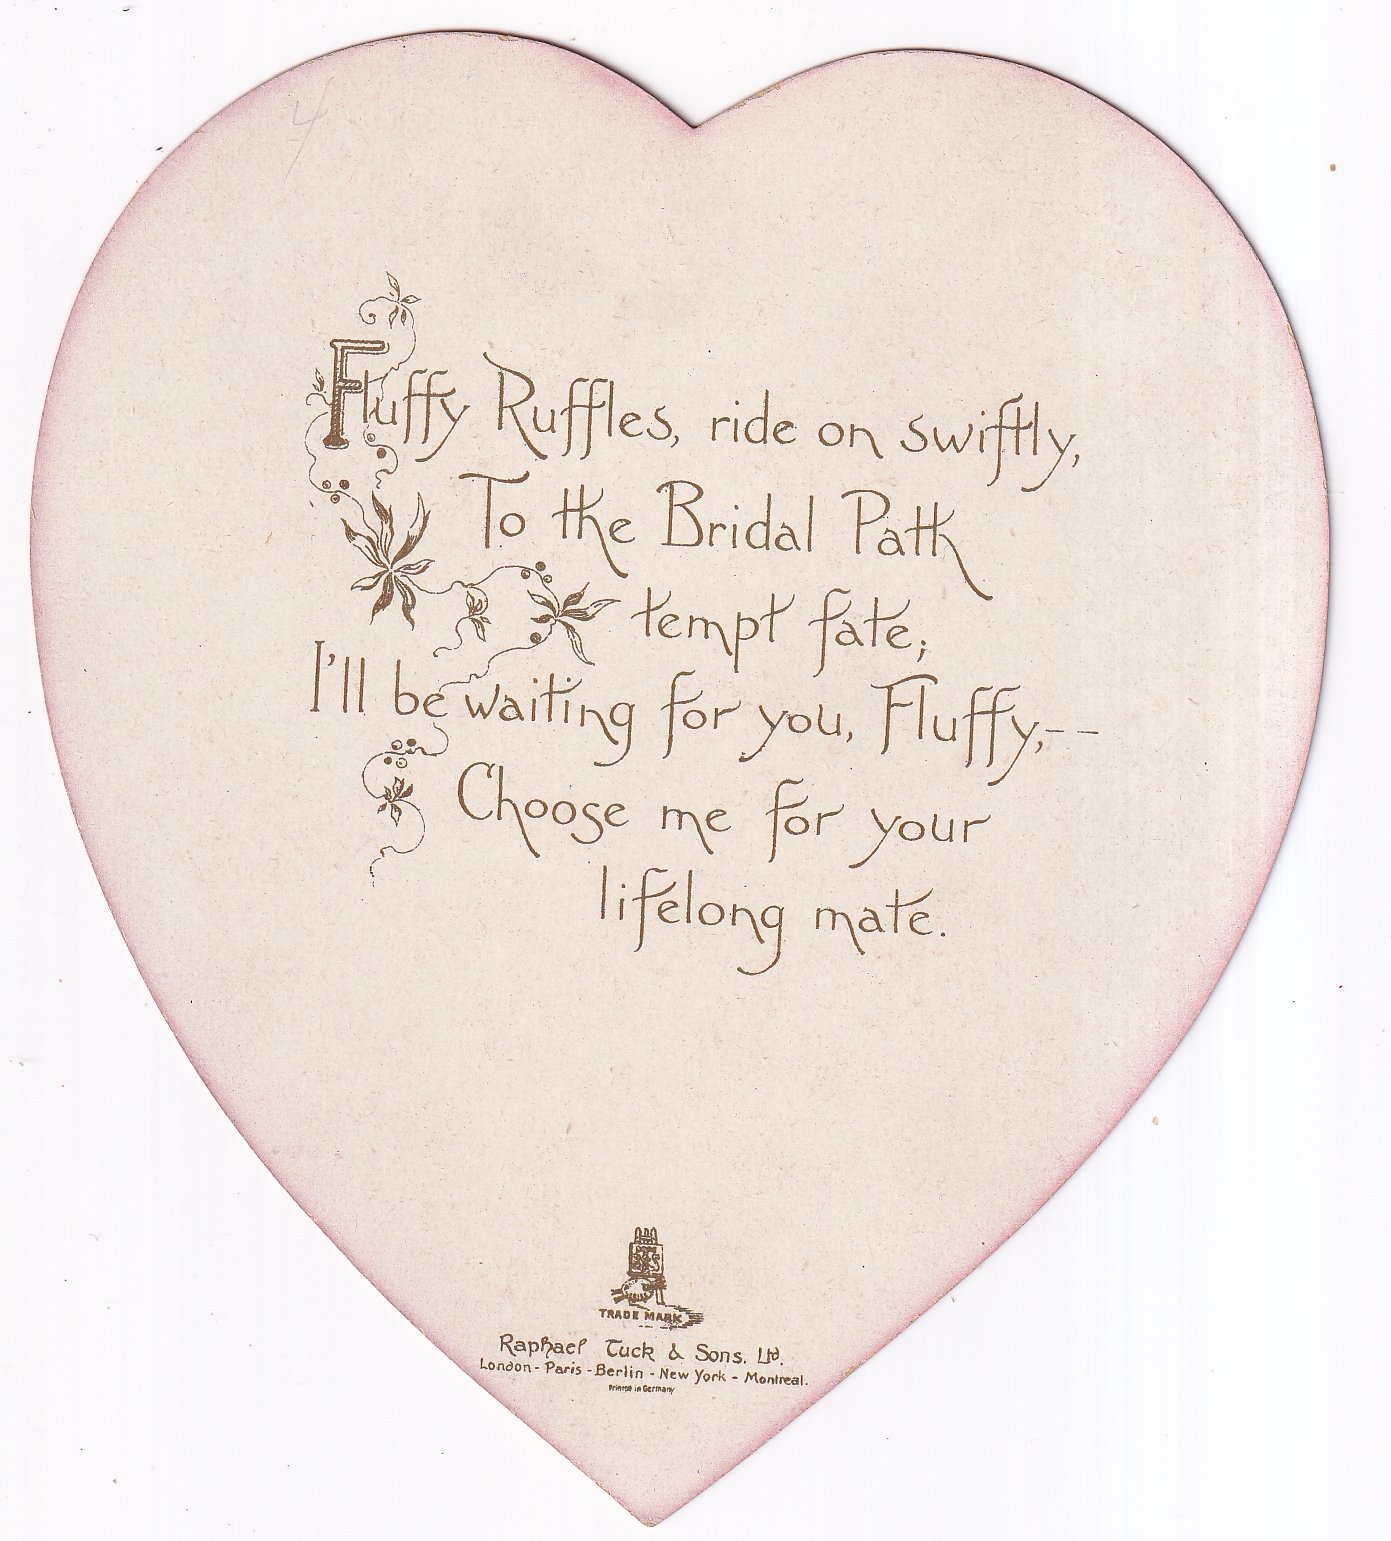 4
Fluffy Ruffles, ride on swiftly,
To the Bridal Path
tempt fate;
I'll be waiting for you, Fluffy,--
Choose me for your
lifelong mate.
TRADE MARK
Raphael Tuck & Sons. Ltd.
London - Paris - Berlin - New York - Montreal.
Printed in Germany